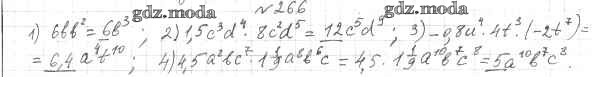 gdz.moda №266 gdz.moda
1) 6bb² = 6b³ ; 2) 1,5c³d⁴ · 8c²d⁵ = 12c⁵d⁹ ; 3) -0,8u⁴ · 4t³ · (-2t⁷) =
= 6,4a⁴t¹⁰ ; 4) 4,5a²bc⁷ · 1 1/9 a⁸b⁶c = 4,5 · 1 1/9 a¹⁰b⁷c⁸ = 5a¹⁰b⁷c⁸.
gdz.moda gdz.moda